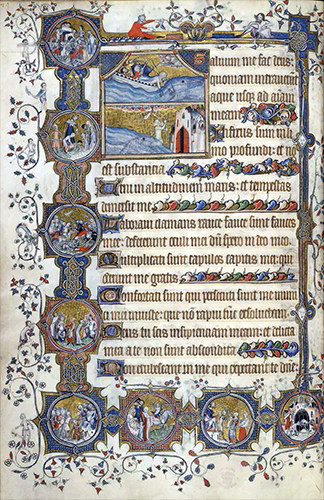 aluum me fac deus:
quoniam intrauerunt
aque usq; ad aiam
meam
Infixus sum in li
mo profundi: et no
est substantia
Veni in altitudinem maris: et tempestas
demersit me
Laboraui clamans rauce facte sunt fauces
mee: defecerunt oculi mei dum spero in deo meo
Multiplicati sunt capillos capitis mei: qui
oderunt me gratis
Confortati sunt qui persecuti sunt me inimi
mei iniuste: que non rapui tunc exsoluebam
Deus tu scis insipienciam meam: et delicta
mea a te non sunt abscondita
Non erubescant in me qui expectant te dne: